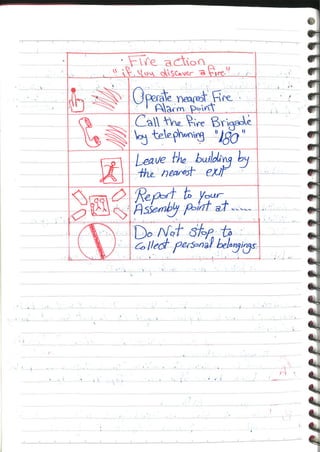 Fire action
"if you discover a fire"
Operate nearest Fire
Alarm point
Call the Fire Brigade
by telephoning "180"
Leave the building by
the nearest exit
Report to your
Assembly point at ......
Do Not stop to
collect personal belongings